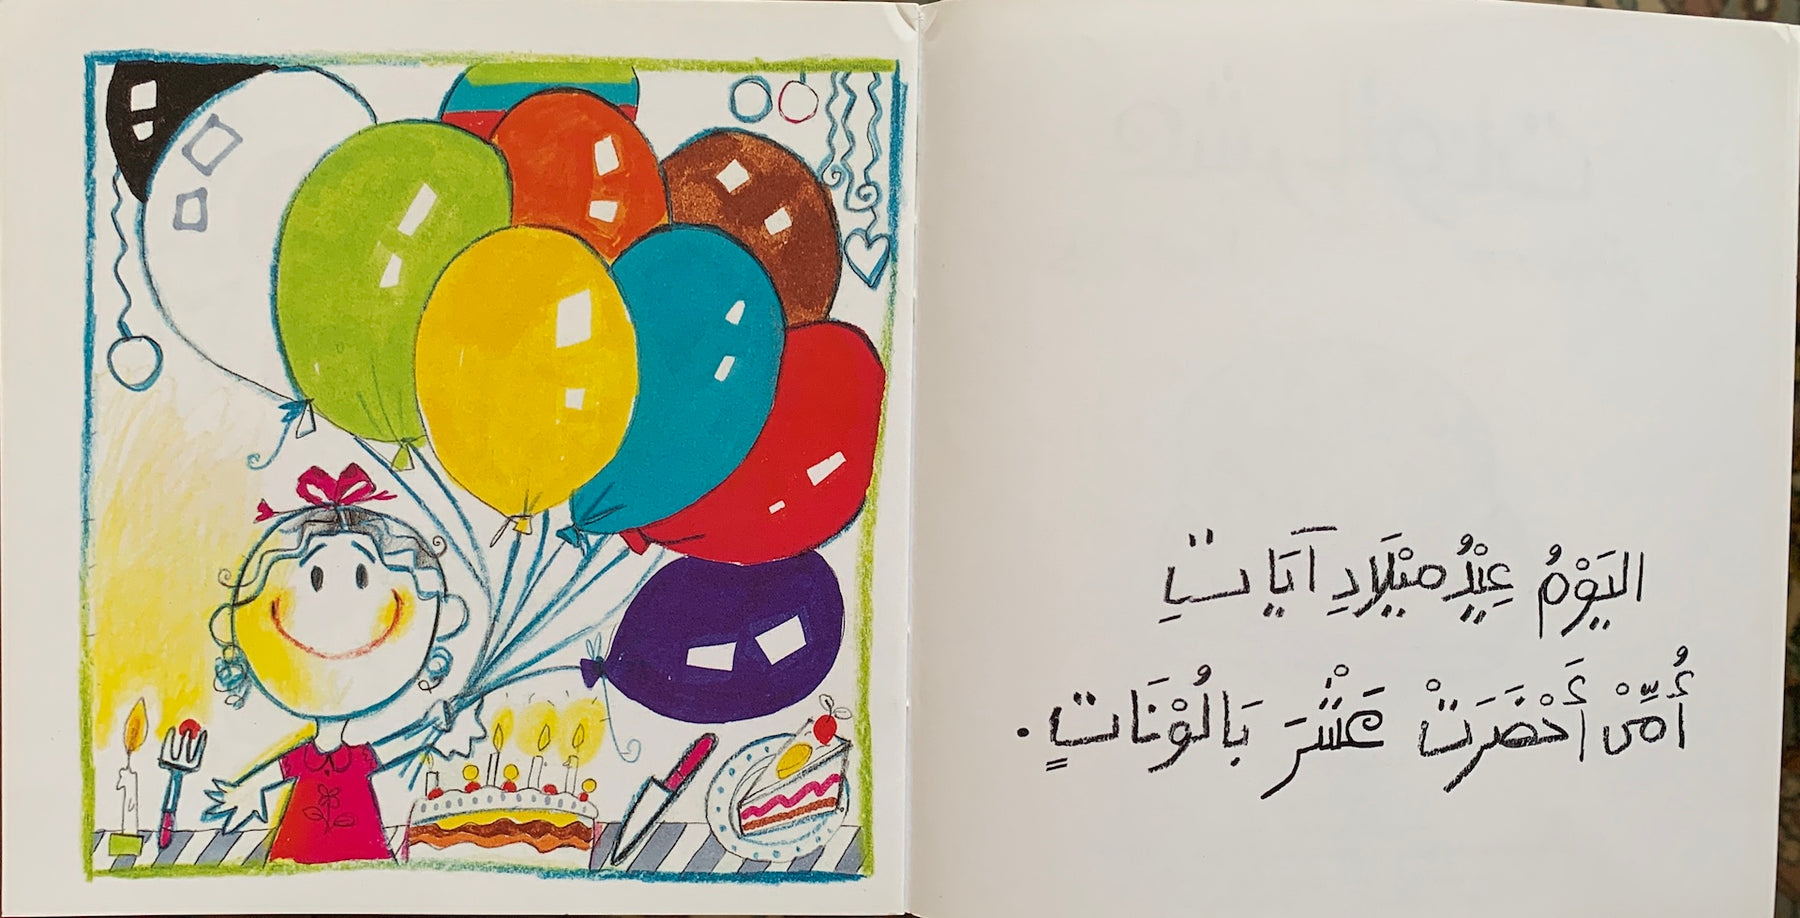 اليَوْمُ عِيْدُ مِيْلَادِ آيَاتٍ
أُمِّيْ أَحْضَرَتْ عَشْرَ بَالُوْنَاتٍ.